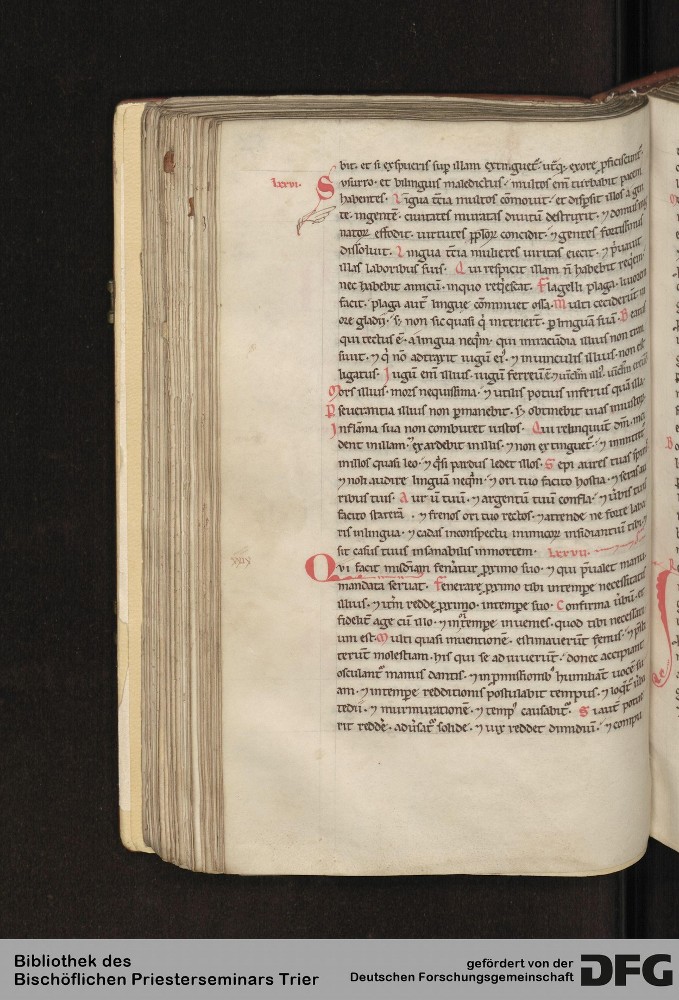 bit. et si exspueris sup illam extinguet᷑. utq; exore p̱ficiscunt᷑.
lxxvi. Susurro. et bilinguis maledictus. multos em̄ turbabit pacem
habentes. Lingua t̄cia multos cōmouit. et dispsit illos a gen
te ingentē. ciuitates muratas diuitū destruxit. ⁊ domus mag
nator̄ effodit. uirtutes pp̄lor̄ concidit. ⁊ gentes fortissimas
dissoluit. Lingua t̄cia mulieres uiritas eiecit. ⁊ p̱uauit
illas laboribus suis. Qui respicit illam n̄ habebit requiem.
nec habebit amicū. inquo req̇escat. Flagelli plaga. liuorem
facit. plaga aut̄ lingue cōminuet ossa. Multi ceciderūt in
ore gladii. s; non sic quasi q̇ interiert̄. p̱ linguā suā. Beatus
qui tectus ē. a lingua neq̄m. qui iniracundia illius non tran
siuit. ⁊ q̇ nō adtraxit iugū ei᷒. ⁊ in uinculis illius. non est
ligatus. Iugū em̄ illius. iugū ferreū ē.
Mors illius. mors nequissima. ⁊ utilis potius inferus quā illa.
Pseuerantia illius non p̱manebit. s; obtinebit uias iniustor̄.
Inflāma sua non comburet iustos. Qui relinquunt dm̄. inci
dent inillam. exardebit inillis. ⁊ non extinguet᷑. ⁊ inmittet᷑
inillos quasi leo. ⁊ q̇si pardus ledet illos. Sepi aures tuas spinis
⁊ noli audire linguā neq̄m. ⁊ ori tuo facito hostia. ⁊ seras au
ribus tuis. Aur̄ū tuū. ⁊ argentū tuū confla. ⁊ ūbis tuis
facito staterā. ⁊ frenos ori tuo rectos. ⁊ attende ne forte laba
ris inlingua. ⁊ cadas inconspectu inimicor̄ insidiantiū tibi. ⁊
sit casus tuus insanabilis inmortem. lxxvii.
Qvi facit mis̄diam fenat᷑ur p̱ximo suo. ⁊ qui p̱ualet manu.
mandata seruat. Fenerare p̱ximo tibi intempe necessitatis
illius. ⁊ itm̄ redde p̱ximo. intempe suo. Confirma ūbū. et
fidelit᷑ age cū illo. ⁊ inom̄i tempe inuenies. quod tibi necessari
um est. Multi quasi inuentionē. estimauerūt fenus. ⁊ p̱sti
terūt molestiam. his qui se adiuuerūt. donec accipiant
osculant᷑ manus dantis. ⁊ inp̱missionib᷒ humiliāt uocē su
am. ⁊ intempe redditionis postulabit tempus. ⁊ loq̇t᷑ ūba
tedii. ⁊ murmurationē. ⁊ temp᷒ causabit᷑. Si aut̄ potue
rit reddē. aduersat᷑ solidi. ⁊ uix reddet dimidiū. ⁊ compu
Bibliothek des
Bischöflichen Priesterseminars Trier
gefördert von der
Deutschen Forschungsgemeinschaft
DFG